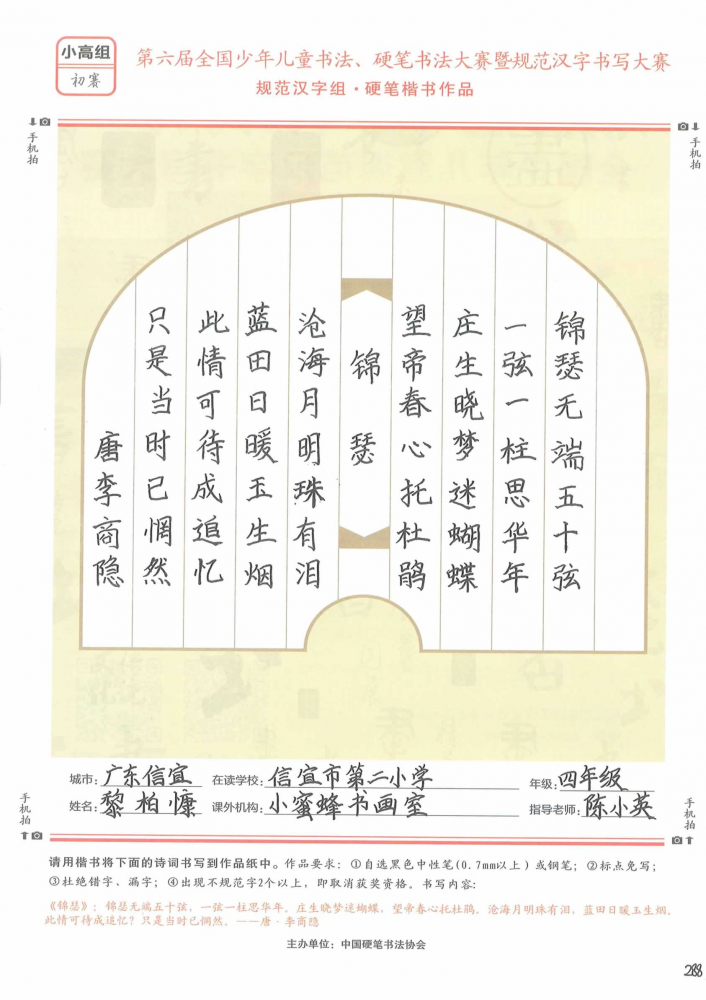 小高组
初赛
第六届全国少年儿童书法、硬笔书法大赛暨规范汉字书写大赛
规范汉字组·硬笔楷书作品
手机拍
手机拍
锦瑟无端五十弦
一弦一柱思华年
庄生晓梦迷蝴蝶
望帝春心托杜鹃
锦瑟
沧海月明珠有泪
蓝田日暖玉生烟
此情可待成追忆
只是当时已惘然
唐李商隐
城市:广东信宜 在读学校:信宜市第二小学 年级:四年级
姓名:黎柏慷 课外机构:小蜜蜂书画室 指导老师:陈小英
手机拍
手机拍
请用楷书将下面的诗词书写到作品纸中。作品要求:①自选黑色中性笔(0.7mm以上)或钢笔;②标点免写;
③杜绝错字、漏字;④出现不规范字2个以上,即取消获奖资格。书写内容:
《锦瑟》:锦瑟无端五十弦,一弦一柱思华年。庄生晓梦迷蝴蝶,望帝春心托杜鹃。沧海月明珠有泪,蓝田日暖玉生烟。
此情可待成追忆?只是当时已惘然。——唐·李商隐
主办单位:中国硬笔书法协会
288